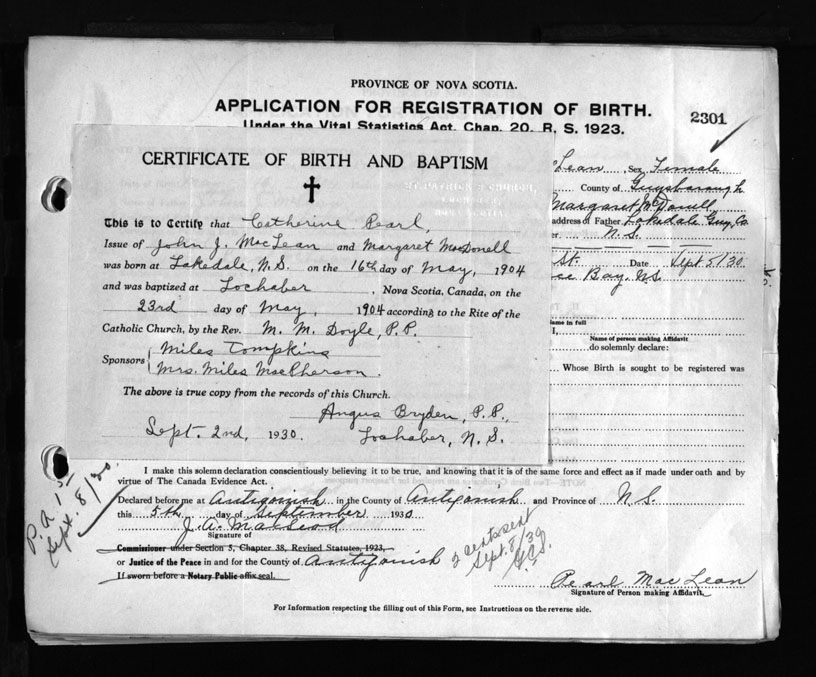 PROVINCE OF NOVA SCOTIA.
APPLICATION FOR REGISTRATION OF BIRTH.
2301
Under the Vital Statistics Act, Chap. 20, R. S. 1923.
CERTIFICATE OF BIRTH AND BAPTISM
This is to Certify that Catherine Pearl,
Issue of John J. MacLean and Margaret MacDonell
was born at Lakedale, N.S. on the 16th day of May, 1904
and was baptized at Lochaber, Nova Scotia, Canada, on the
23rd day of May, 1904 according to the Rite of the
Catholic Church, by the Rev. M. M. Doyle, P.P.
Sponsors Miles Tompkins
Mrs. Miles MacPherson.
The above is true copy from the records of this Church.
Angus Bryden, P.P.,
Sept. 2nd, 1930. Lochaber, N.S.
Lean, Sex Female
County of Guysborough
Margaret McDonell
address of Father Lakedale Guy. Co
N.S.
St. Date Sept 5/30
ce Bay, N.S.
me in full
I,
Name of person making Affidavit
do solemnly declare:
Whose Birth is sought to be registered was
I make this solemn declaration conscientiously believing it to be true, and knowing that it is of the same force and effect as if made under oath and by
virtue of The Canada Evidence Act.
Declared before me at Antigonish in the County of Antigonish and Province of N.S.
this 5th day of September 1930
J. A. MacLeod
Signature of
Commissioner under Section 5, Chapter 38, Revised Statutes, 1923,
or Justice of the Peace in and for the County of Antigonish
If sworn before a Notary Public affix seal.
P.a. 1st
Sept. 8/30.
2 cents sent
Sept. 8/30
Pearl MacLean
Signature of Person making Affidavit.
For Information respecting the filling out of this Form, see Instructions on the reverse side.